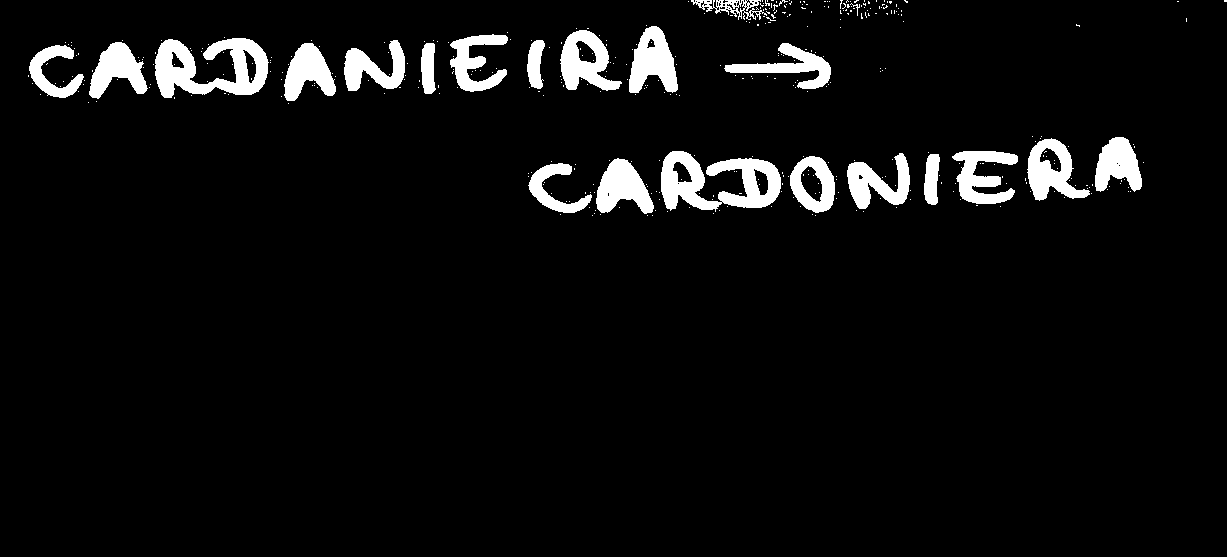 CARDANIEIRA →
CARDONIERA